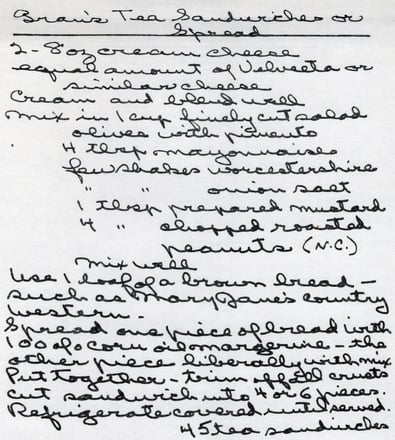 Bran's Tea Sandwiches or
Spread
2 - 8 oz cream cheese
equal amount of Velveeta or
similar cheese
Cream and blend well
Mix in 1 cup finely cut salad
olives with pimento
4 tbsp mayonnaise
few shakes worcestershire
" " onion salt
1 tbsp prepared mustard
4 " chopped roasted
peanuts (N.C.)
Mix well
Use 1 loaf of a brown bread -
such as Mary Jane's country
western.
Spread one piece of bread with
100% corn oil margerine - the
other piece liberally with mix
Put together - trim off all crusts
cut sandwich into 4 or 6 pieces.
Refrigerate covered until served.
45 tea sandwiches